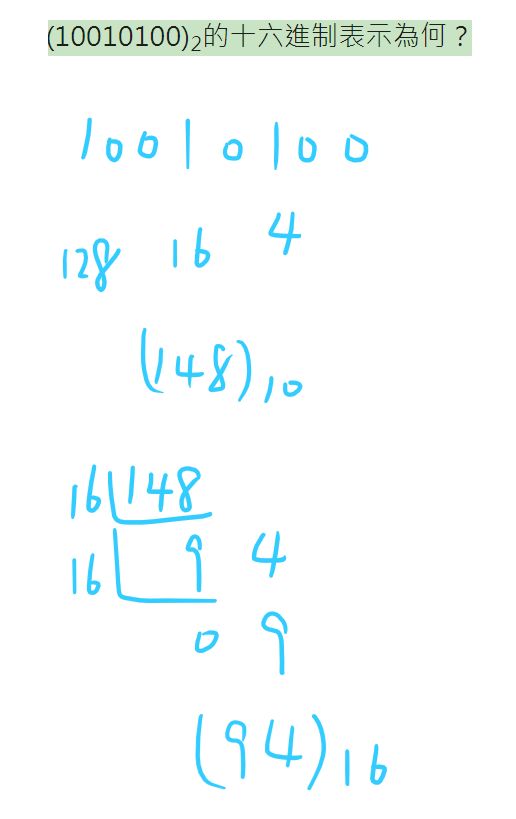 (10010100)₂的十六進制表示為何？
10010100
128 16 4
(148)₁₀
16 148
16 9 4
0 9
(94)₁₆